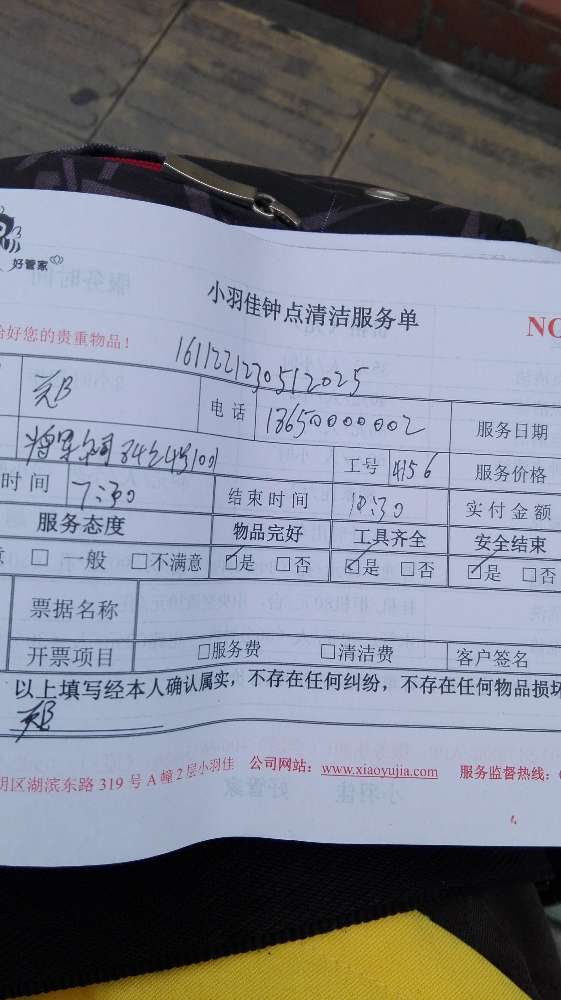 好管家
小羽佳钟点清洁服务单
NO
好您的贵重物品!
161122123051 2025
电话 18650000002 服务日期
工号 4156 服务价格
时间 7:30 结束时间 10:30 实付金额
服务态度 物品完好 工具齐全 安全结束
□一般 □不满意 ☑是 □否 ☑是 □否 ☑是 □否
票据名称
开票项目 □服务费 □清洁费 客户签名
以上填写经本人确认属实,不存在任何纠纷,不存在任何物品损坏
明区湖滨东路 319 号 A 幢 2 层小羽佳 公司网站:www.xiaoyujia.com 服务监督热线: